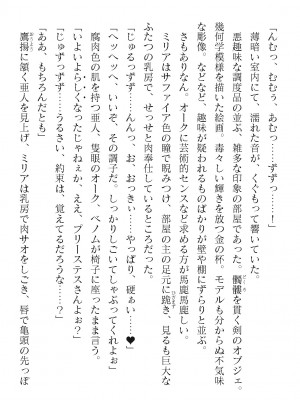 「んむっ、むむぅ、あむっ……ずずぅ……！」
薄暗い室内にて、濡れた音が、くぐもって響いていた。
悪趣味な調度品の並ぶ、雑多な印象の部屋であった。髑髏を貫く剣のオブジェ。
幾何学模様を描いた絵画。毒々しい輝きを放つ金の杯。モデルも分からぬ不気味
な彫像。などなど、趣味が疑われるものばかりが壁や棚にずらりと並ぶ。
さもありなん。オークに芸術的センスなど求める方が馬鹿馬鹿しい。
ミリアはサファイア色の瞳で睨みつけ、部屋の主の足元に跪き、見るも巨大な
ふたつの乳房で、せっせと肉奉仕しているところだった。
「じゅるっずずっ……んんっ、お、おっきぃ……やっぱり、硬ぁい♥」
「ヘッヘッヘ、いいぞ、その調子だ。しっかりしごいてしゃぶってくれよぉ」
腐肉色の肌を持つ亜人、隻眼のオーク、ベノムが椅子に座ったまま言う。
「いよいよらしくなったじゃねぇか、ええ、プリーステスさんよぉ？」
「じゅずずっ……うるさい、約束は、覚えてるだろうな……？」
「ああ、もちろんだとも」
鷹揚に頷く亜人を見上げ、ミリアは乳房で肉サオをしごき、唇で亀頭の先っぽ